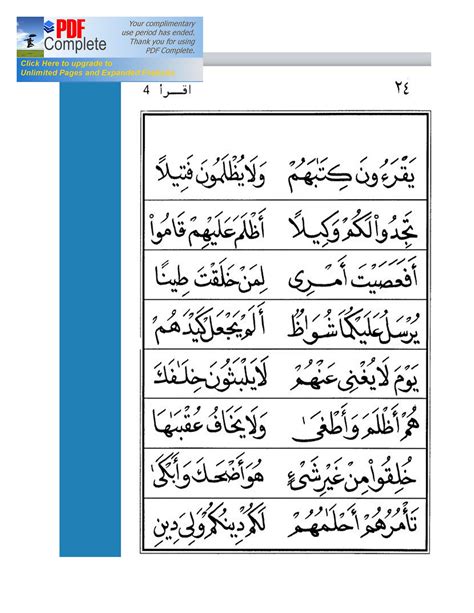 PDF Complete
Your complimentary
use period has ended.
Thank you for using
PDF Complete.
Click Here to upgrade to
Unlimited Pages and Expanded Features
٢٤ اقـــرأ 4
يَقْرَءُونَ كِتَٰبَهُمْ وَلَا يُظْلَمُونَ فَتِيلًا
تَجِدُوا۟ لَكُمْ وَكِيلًا أَظْلَمَ عَلَيْهِمْ قَامُوا۟
أَفَعَصَيْتَ أَمْرِى لِمَنْ خَلَقْتَ طِينًا
يُرْسَلُ عَلَيْكُمَا شُوَاظٌ أَلَمْ يَجْعَلْ كَيْدَهُمْ
يَوْمَ لَا يُغْنِى عَنْهُمْ لَا يَلْبَثُونَ خِلَٰفَكَ
هُمْ أَظْلَمَ وَأَطْغَىٰ وَلَا يَخَافُ عُقْبَٰهَا
خُلِقُوا۟ مِنْ غَيْرِ شَىْءٍ هُوَ أَضْحَكَ وَأَبْكَىٰ
تَأْمُرُهُمْ أَحْلَٰمُهُمْ لَكُمْ دِينُكُمْ وَلِىَ دِينِ